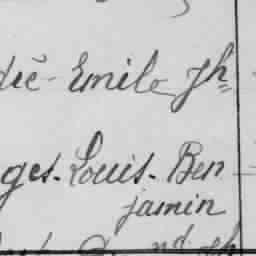 dré-Emile Jh=
ges-Louis-Ben
jamin